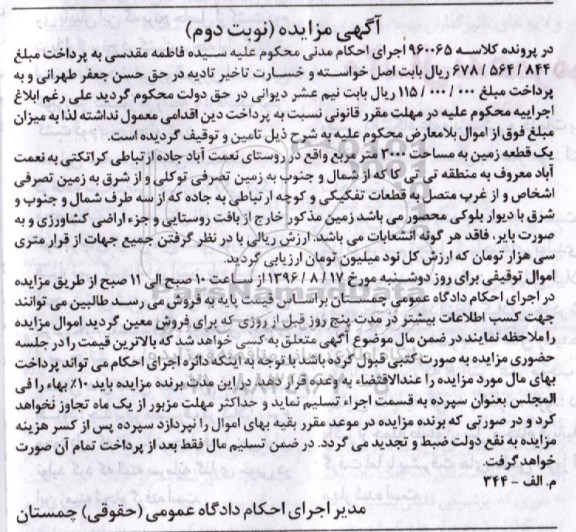 آگهی مزایده (نوبت دوم)
در پرونده کلاسه ۹۶۰۰۶۵ اجرای احکام مدنی محکوم علیه سیده فاطمه مقدسی به پرداخت مبلغ
۶۷۸/۵۶۴/۸۴۴ ریال بابت اصل خواسته و خسارت تاخیر تادیه در حق حسن جعفر طهرانی و به
پرداخت مبلغ ۱۱۵/۰۰۰/۰۰۰ ریال بابت نیم عشر دیوانی در حق دولت محکوم گردید علی رغم ابلاغ
اجراییه محکوم علیه در مهلت مقرر قانونی نسبت به پرداخت دین اقدامی معمول نداشته لذا به میزان
مبلغ فوق از اموال بلامعارض محکوم علیه به شرح ذیل تامین و توقیف گردیده است.
یک قطعه زمین به مساحت ۳۰۰۰ متر مربع واقع در روستای نعمت آباد جاده ارتباطی کراتکتی به نعمت
آباد معروف به منطقه تی تی کا که از شمال و جنوب به زمین تصرفی توکلی و از شرق به زمین تصرفی
اشخاص و از غرب متصل به قطعات تفکیکی و کوچه ارتباطی به جاده که از سه طرف شمال و جنوب و
شرق با دیوار بلوکی محصور می باشد زمین مذکور خارج از بافت روستایی و جزء اراضی کشاورزی و به
صورت بایر، فاقد هر گونه انشعابات می باشد. ارزش ریالی با در نظر گرفتن جمیع جهات از قرار متری
سی هزار تومان که ارزش کل نود میلیون تومان ارزیابی گردید.
اموال توقیفی برای روز دوشنبه مورخ ۱۳۹۶/۸/۱۷ از ساعت ۱۰ صبح الی ۱۱ صبح از طریق مزایده
در اجرای احکام دادگاه عمومی چمستان براساس قیمت پایه به فروش می رسد طالبین می توانند
جهت کسب اطلاعات بیشتر در مدت پنج روز قبل از روزی که برای فروش معین گردید اموال مزایده
را ملاحظه نمایند در ضمن مال موضوع آگهی متعلق به کسی خواهد شد که بالاترین قیمت را در جلسه
حضوری مزایده به صورت کتبی قبول کرده باشد. با توجه به اینکه دائره اجرای احکام می تواند پرداخت
بهای مال مورد مزایده را عندالاقتضاء به وعده قرار دهد. در این مدت برنده مزایده باید ۱۰٪ بهاء را فی
المجلس بعنوان سپرده به قسمت اجراء تسلیم نماید و حداکثر مهلت مزبور از یک ماه تجاوز نخواهد
کرد و در صورتی که برنده مزایده در موعد مقرر بقیه بهای اموال را نپردازد سپرده پس از کسر هزینه
مزایده به نفع دولت ضبط و تجدید می گردد. در ضمن تسلیم مال فقط بعد از پرداخت تمام آن صورت
خواهد گرفت.
م. الف - ۳۴۴
مدیر اجرای احکام دادگاه عمومی (حقوقی) چمستان